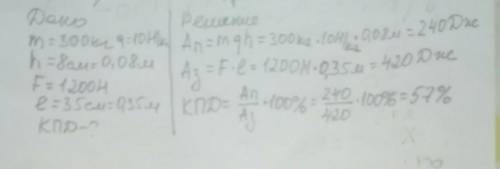 Дано
m=300кг g=10Н/кг
h=8см=0,08м
F=1200Н
ℓ=35см=0,35м
КПД-?
Решение
Aп=mgh=300кг·10Н/кг·0,08м=240Дж
Aз=F·ℓ=1200Н·0,35м=420Дж
КПД=Aп/Aз·100%=240/420·100%=57%